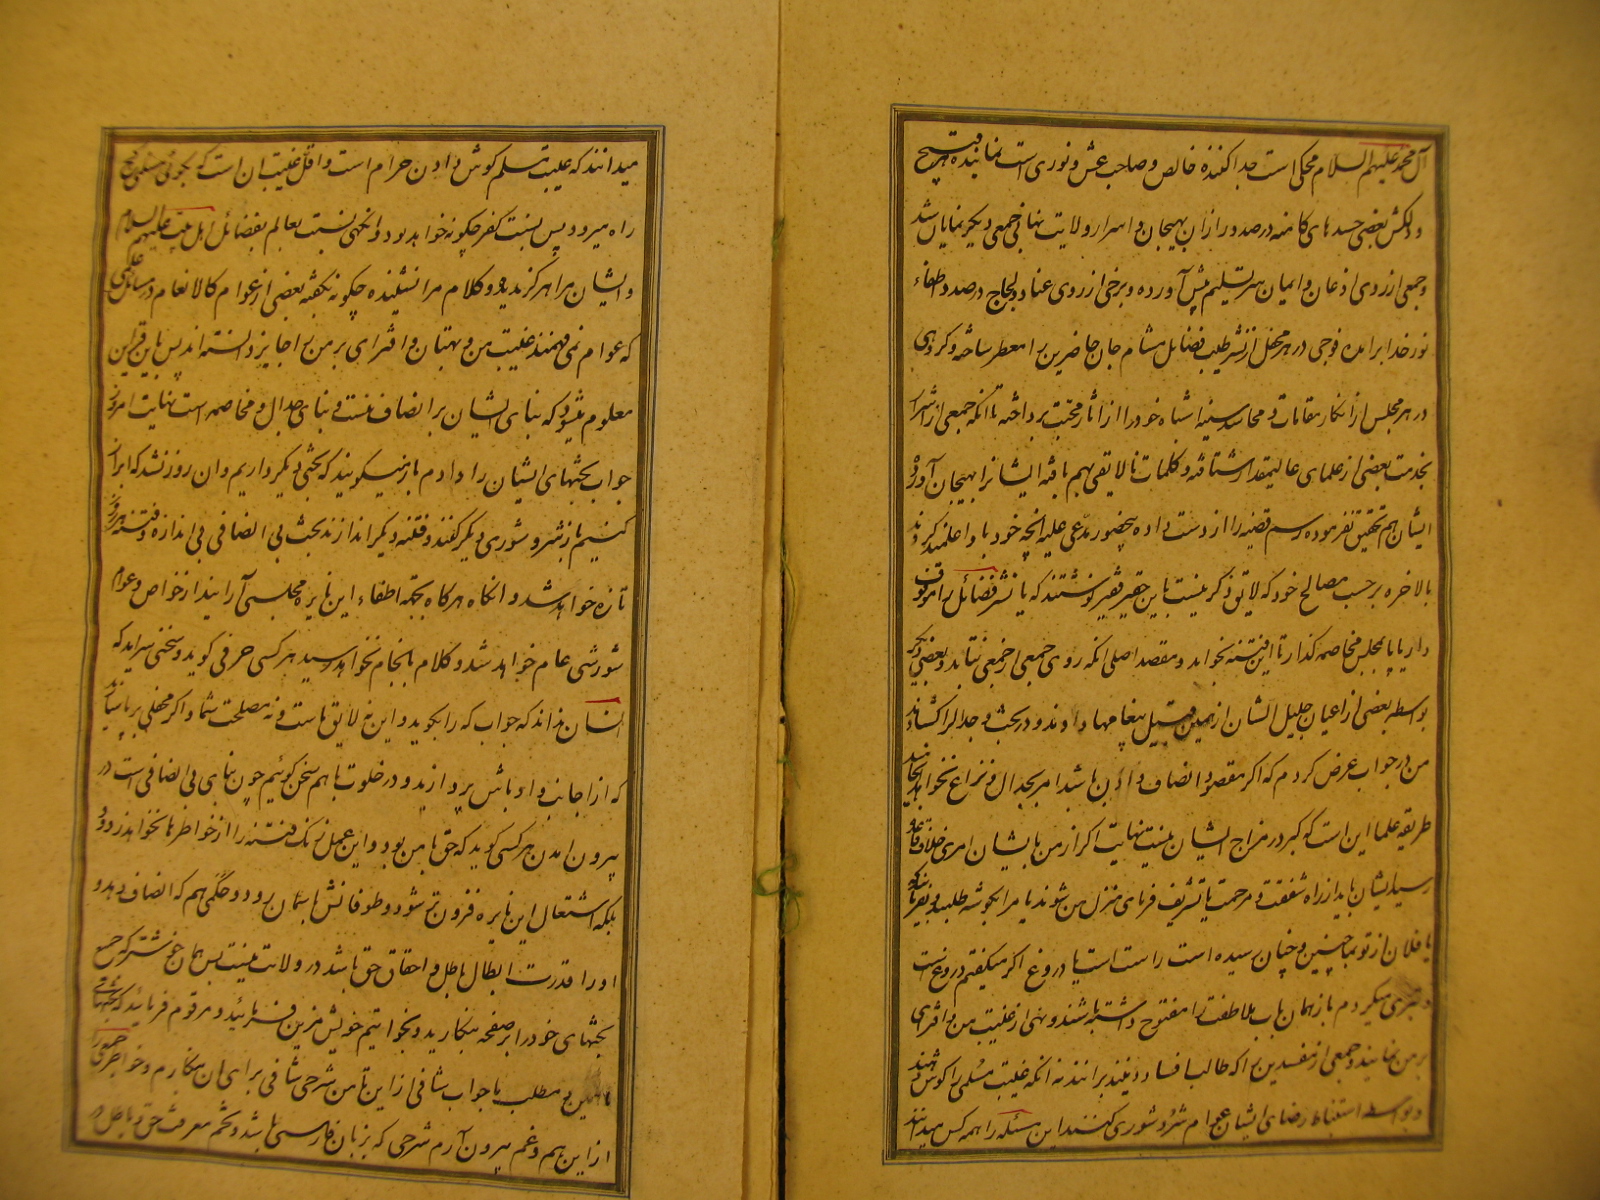 آل محمد علیهم السلام محکی است جدا کننده خالص و صاحب غش و نوری است نماینده قبیح
و دلکش بعضی حسد های کامنه در صدور ازان بهیجان و اسرار ولایت نهانی جمعی دیگر نمایان شد
و جمعی از روی اذعان و ایمان سر تسلیم پیش آورده و برخی از روی عناد و لجاج در صدد اطفاء
نور خدا برامده فوجی در هر محفل از نشر طیب فضائل مشام جان حاضرین را معطر ساخته و کروهی
در هر مجلس از انکار مقامات و محامد سینه خود را از اثار محبت پرداخته تا انکه جمعی از اشرار
بخدمت بعضی از علمای عالیمقدار شتافته و کلمات نالایقی بهم بافته ایشانرا بهیجان آوردند
ایشان هم تحقیق نفرموده رسم قضیه را از دست داده بحضور مدعی علیه انچه خود با و اعلمند کردند
بالاخره بر حسب مصالح خود که لایق ذکر نیست باین حقیر فقیر نوشتند که یا نشر فضائل را موقوف
دار یا پا بمجلس مخاصمه کذار تا این فتنه بخوابد و مقصد اصلی انکه روی جمعی از جمعی نتابد و بعضی دیکر
بواسطه بعضی از اعیان جلیل الشان ازین قبیل پیغامها دادند و در بحث و جدال را کشادند
من در جواب عرض کردم که اکر مقصود انصاف دادن باشد امر بجدال و نزاع نخواهد انجامید
طریقه علما این است که کبر در مزاج ایشان نیست نهایت اکر از من بایشان امری خلاف واقع
رسید ایشان باید از راه شفقت و مرحمت یا تشریف فرمای منزل من شوند یا مرا بکوشه طلبند و بفرمایند که
یا فلان از تو بما چنین و چنان رسیده است راست است یا دروغ اکر میکفتم دروغ است
و تبری میکردم باز همان باب ملاطفت را مفتوح داشته باشند و نهی از غیبت من و افترای
بر من نمایند و جمعی از مفسدین را که طالب فساد و فتنند برانند نه انکه غیبت مسلمی را کوش دهند
و بواسطه استنباط رضای ایشان عوام شر و شوری کنند این مسئله را همه کس میدانند
میدانند که غیبت مسلم کوش دادن حرام است و اقل غیبت ان است که بکوئی مسلمی کج
راه میرود پس نسبت کفر چکونه خواهد بود وانکهی نسبت بعالم بفضائل اهل بیت علیهم السلام
و ایشان مرا هرکز ندیده و کلام مرا نشنیده چکونه بکفته بعضی از عوام کالانعام در مسائل علمی
که عوام نمی فهمند غیبت من و بهتان و افترای بر من را جایز دانسته اند پس باین قراین
معلوم میشود که بنای ایشان بر انصاف نیست و بنای جدال و مخاصمه است نهایت امروز
جواب بحثهای ایشان را دادم باز میکویند که بحثی دیکر داریم و ان روز نشد که ایراد
کنیم باز شر و شوری دیکر کنند و فتنه دیکر اندازند بحث بی انصافی بی اندازه و فتنه هر روز
تازه خواهد شد و انکاه هرکاه بجهة اطفاء این نایره مجلسی آرایند از خواص و عوام
شورشی عام خواهد شد و کلام بانجام نخواهد رسید هر کسی حرفی کوید و سخنی سراید که
انسان نداند که جواب که را بکوید و این نه لایق ماست و نه مصلحت شما و اکر محفلی برپا نمایند
که از اجانب و اوباش پردازید و در خلوت با هم سخن کوئیم چون بنای بی انصافی است در
بیرون امدن هر کسی کوید که حق با من بود و این عمل زنک فتنه را از خواطر ها نخواهد زدود
بلکه اشتعال این نایره فزون تر شود و طوفانش باسمان رود و حکمی هم که انصاف دهد و
او را قدرت ابطال باطل و احقاق حق باشد در ولایت نیست پس همان خوشتر که جمیع
بحثهای خود را بر صفحه بنکارید و بخواتیم خویش مزین فرمائید و مرقوم فرمائید که بحثهای
مطلب ما جواب شافی ازاین تا من شرحی شافی برای ان بنکارم و خواطر جمعی را
ازاین هم و غم بیرون آرم شرحی که بزبان فارسی باشد و تخم معرفت حق و باطل در